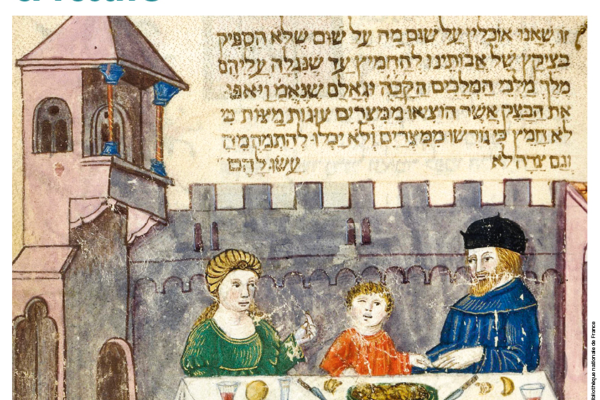 זו שאנו אוכלין על שום מה על שום שלא הספיק
בציקן של אבותינו להחמיץ עד שנגלה עליהם
מלך מלכי המלכים הקבה וגאלם שנאמ ויאפו
את הבצק אשר הוציאו ממצרים עוגות מצות כי
לא חמץ כי גורשו ממצרים ולא יכלו להתמהמה
וגם צדה לא עשו להם
nationale de France